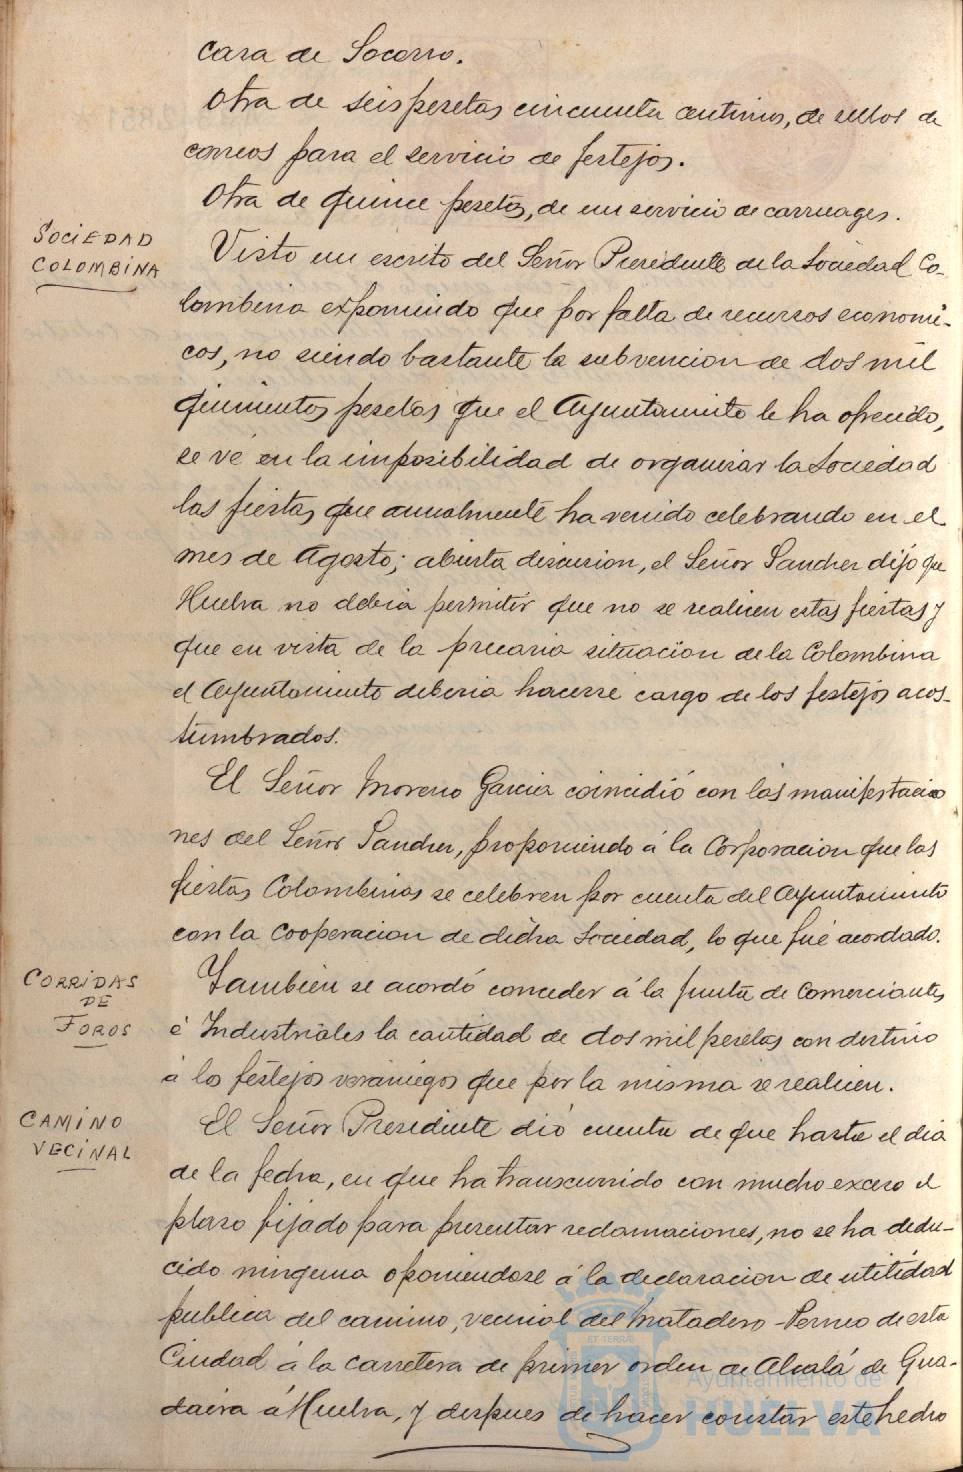 casa de Socorro.
Otra de seis pesetas cincuenta centimos, de sellos de
correos para el servicio de festejos.
Otra de quince pesetas, de un servicio de carruages.
SOCIEDAD
COLOMBINA
Visto un escrito del Señor Presidente de la Sociedad Co-
lombina exponiendo que por falta de recursos economi-
cos, no siendo bastante la subvencion de dos mil
quinientas pesetas que el Ayuntamiento le ha ofrecido,
se vé en la imposibilidad de organizar la Sociedad
las fiestas que anualmente ha venido celebrando en el
mes de Agosto; abierta discusion, el Señor Sanchez dijo que
Huelva no debia permitir que no se realicen estas fiestas y
que en vista de la precaria situacion de la Colombina
el Ayuntamiento deberia hacerse cargo de los festejos acos-
tumbrados.
El Señor Moreno Garcia coincidió con las manifestacio
nes del Señor Sanchez, proponiendo á la Corporacion que las
fiestas Colombinas se celebren por cuenta del Ayuntamiento
con la cooperacion de dicha Sociedad, lo que fué acordado.
CORRIDAS
DE
TOROS
Tambien se acordó conceder á la Junta de Comerciantes
é Industriales la cantidad de dos mil pesetas con destino
á los festejos veraniegos que por la misma se realicen.
CAMINO
VECINAL
El Señor Presidente dió cuenta de que hasta el dia
de la fecha, en que ha transcurrido con mucho exceso el
plazo fijado para presentar reclamaciones, no se ha dedu-
cido ninguna oponiendose á la declaracion de utilidad
publica del camino vecinal del Matadero - Perneo de esta
Ciudad á la carretera de primer orden de Alcalá de Gua-
daira á Huelva, y despues de hacer constar este hecho
ET TERRÆ
Ayuntamiento de
HUELVA